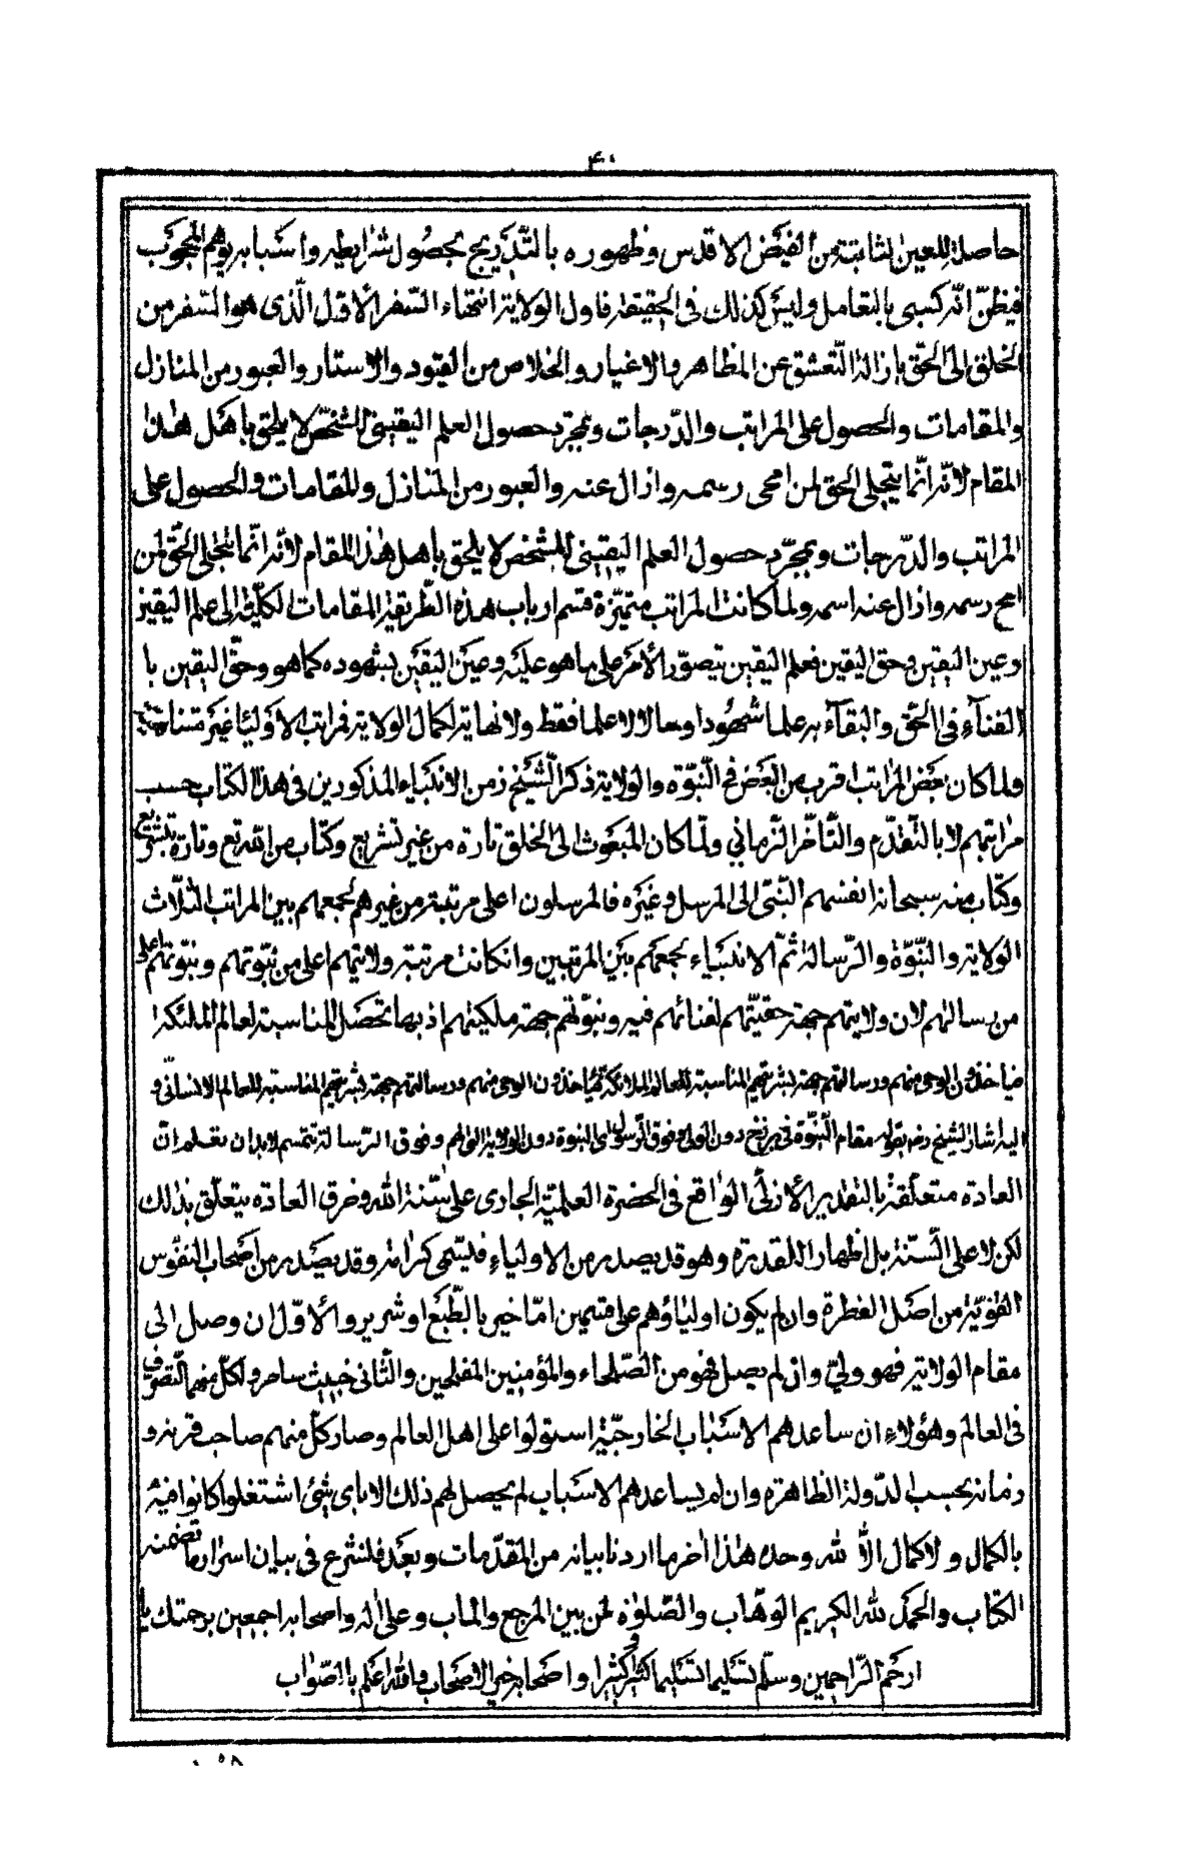 ۴۰
حاصل للعين الثابتة من الفيض الاقدس وظهوره بالتدريج بحصول شرايطه واسبابه يوهم المحجوب
فيظن انه كسبي بالتعامل وليس كذلك في الحقيقة فاول الولاية انتهاء السفر الأول الذى هو السفر من
الخلق الى الحق بازالة التعشق عن المظاهر والاغيار والخلاص من القيود والاستار والعبور من المنازل
والمقامات والحصول على المراتب والدرجات وبمجرد حصول العلم اليقيني للشخص لا يلحق باهل هذا
المقام لانه انما يتجلى الحق لمن امحى رسمه وازال عنه والعبور من المنازل والمقامات والحصول على
المراتب والدرجات وبمجرد حصول العلم اليقيني للشخص لا يلحق باهل هذا المقام لانه انما يتجلى الحق لمن
امح رسمه وازال عنه اسمه ولما كانت المراتب متميزة قسم ارباب هذه الطريقة المقامات الكلية الى علم اليقين
وعين اليقين وحق اليقين فعلم اليقين تصور الأمر على ما هو عليه وعين اليقين بشهوده كما هو وحق اليقين با
الفناء في الحق والبقاء به علما شهودا وحالا لا علما فقط ولا نهاية لكمال الولاية فمراتب الأوليا غير متناهية
ولما كان بعض المراتب اقرب من البعض في النبوة والولاية ذكر الشيخ رض الانبياء المذكورين في هذا الكتاب حسب
مراتبهم لا بالتقدم والتأخر الزماني ولما كان المبعوث الى الخلق تارة من غير تشريع وكتاب من الله تع وتارة بتشريع
وكتاب منه سبحانه انقسم النبى الى المرسل وغيره فالمرسلون اعلى مرتبة من غيرهم لجمعهم بين المراتب الثلاث
الولاية والنبوة والرسالة ثم الانبياء لجمعهم بين المرتبتين وانكانت مرتبة ولايتهم اعلى من نبوتهم ونبوتهم اعلى
من رسالتهم لان ولايتهم جهة حقيتهم لفنائهم فيه ونبوتهم جهة ملكيتهم اذ بها تحصل المناسبة لعالم الملئكة
فياخذون الوحى منهم ورسالتهم جهة بشريتهم المناسبة للعالم الملائكة فياخذون الوحى منهم ورسالتهم جهة بشريتهم المناسبة للعالم الانسانى و
اليه اشار الشيخ رض بقوله مقام النبوة في برزخ دون الولى وفوق الرسول اى النبوة دون الولاية التى لهم وفوق الرسالة تتمسم لا بد ان تعلم ان
العادة متعلقة بالتقدير الأزلى الواقع في الحضرة العلمية الجارى على سنة الله وخرق العادة يتعلق بذلك
لكن لا على السنة بل اظهار اللقدرة وهو قد يصدر من الاولياء فليسمى كرامة وقد يصدر من اصحاب النفوس
القوية من اصل الفطرة وان لم يكون اولياؤهم على قسمين اما خير بالطبع او شرير والأول ان وصل الى
مقام الولاية فهو ولي وان لم يصل فهو من الصلحاء والمؤمنين المفلحين والثانى خبيث ساحر ولكل منهم التصرف
في العالم وهؤلاء ان ساعدهم الاسباب الخارجية استولوا على اهل العالم وصار كل منهم صاحب قرنه و
زمانه بحسب الدولة الظاهرة وان لم يساعدهم الاسباب لم يحصل لهم ذلك الا باى شئ اشتغلوا كانوا فيه
بالكمال ولا كمال الا لله وحده هذا اخر ما اردنا بيانه من المقدمات وبعد فلنشرع فى بيان اسرار ما تضمنه
الكتاب والحمد لله الكريم الوهاب والصلوٰة لمن بين المرجع والماب وعلى اله واصحابه اجمعين برحمتك يا
ارحم الراحمين وسلم تسليما تسليما كثيرا كثيرا واصحابه خير الاصحاب والله اعلم باالصواب